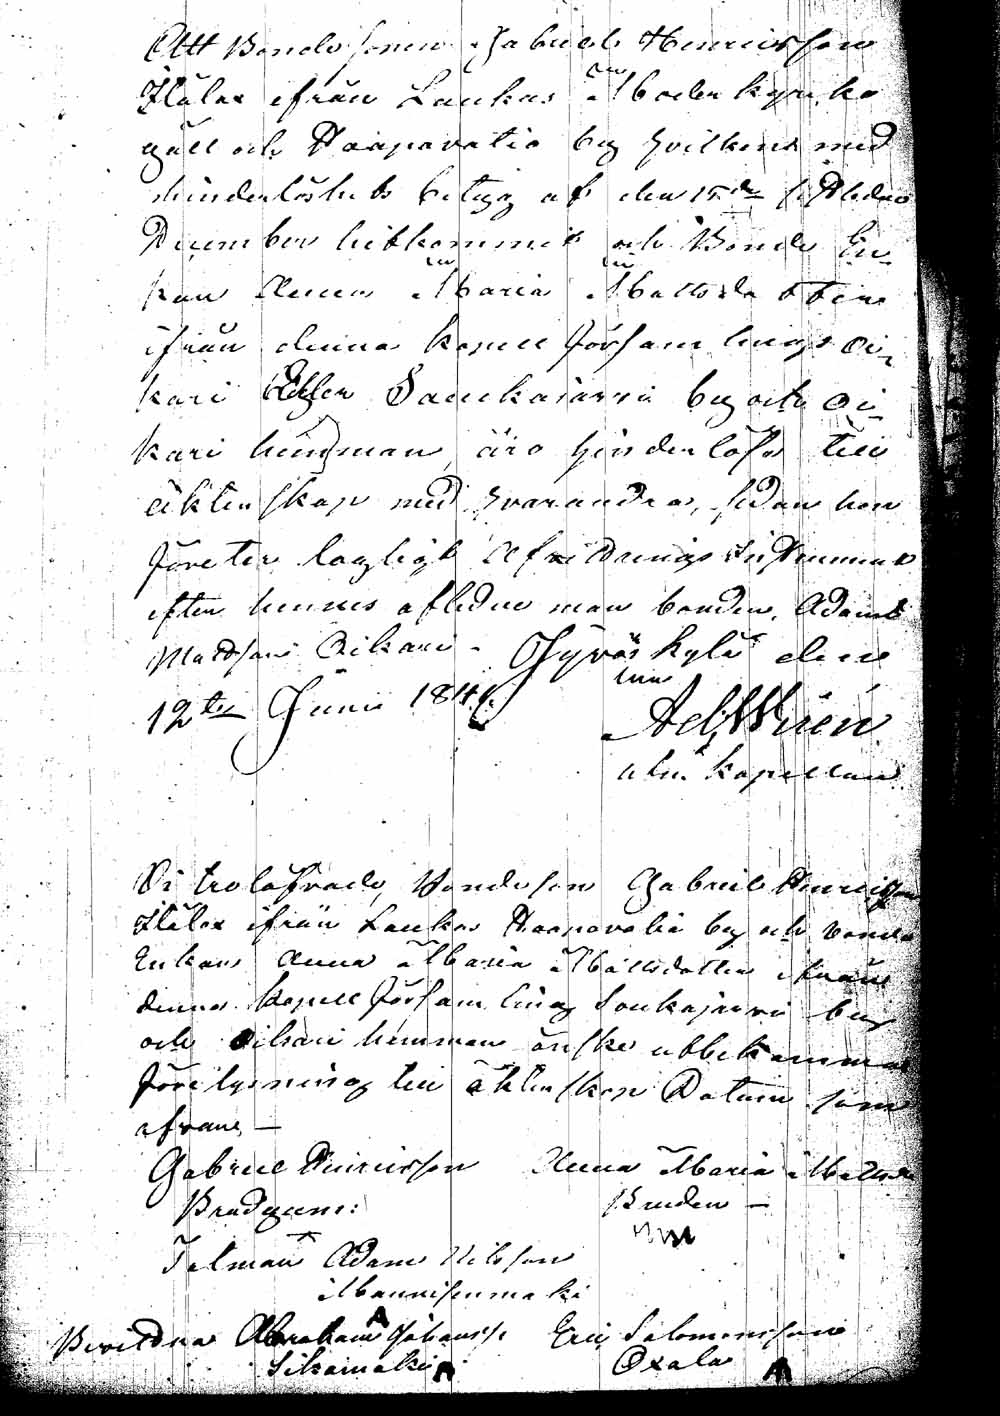 Att Bonde sonen Gabriel Henricsson
Ilälax ifrån Laukas Moder kyrko
gäll och Haapavatia by hvilken med
hinderlöshets betyg af den 15de sistledne
December hitkommit och Bonde En-
kan Anna Maria Mattsdotter
ifrån denna kapell församlings Oi-
kari Eller Saukajärvi by och Oi-
kari hemman, äro hinderlöse till
äktenskap med hvarandra, sedan hon
företer lagligt Afvittrings Instrument
efter hennes aflidne man bonden Adam
Mattsson Oikari - Jyväskylä den
12te Junii 184
Ad. Wirén
kapellan
Vi trolofvade, Bondeson Gabriel Henricsson
Ilälax ifrån Laukas Haapavatia by och bonde
Enkan Anna Maria Mattsdotter ifrån
denna kapell församling Soukajärvi by
och Oikari hemman önska utbekomma
förelysning till äktenskap Datum som
ofvan, —
Gabriel Henricsson Anna Maria Mattsd
Brudgum: Bruden —
Talman Adam Nilsson
Mannisenmäki
Bevittna Abraham Johanss: Eric Salomonsson
Sikamäki Oxala